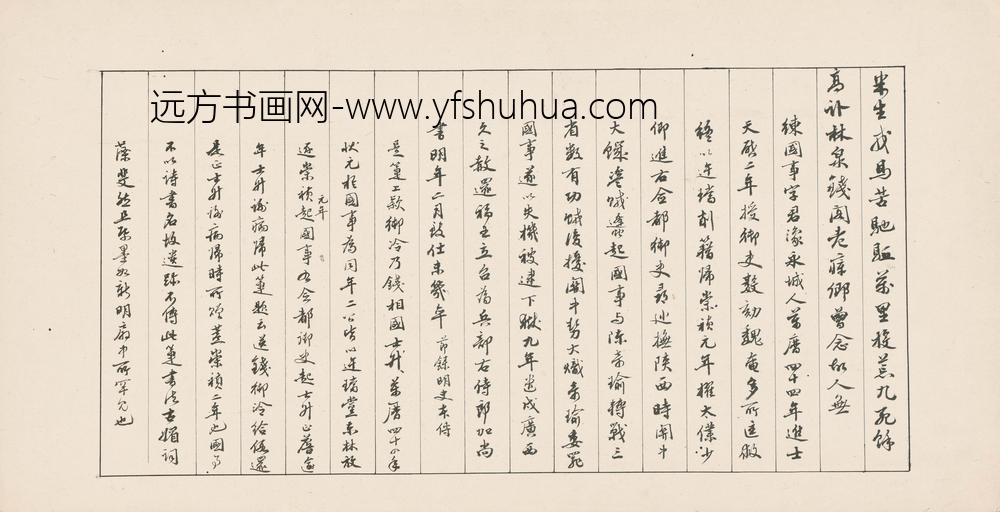 远方书画网-www.yfshuhua.com
米生戎马苦馳驅萬里投荒九死餘
高卧林泉錢閣老寐卿曾念故人無
練國事字君豫永城人萬曆四十四年進士
天啟二年授御史數劾魏奄多所匡救
繼以連璫削籍歸崇禎元年擢太僕少
卿進右僉都御史尋巡撫陝西時關中
大饑盜賊逢起國事与陳奇瑜搏戰三
省数有功賊後擾關中勢大熾奇瑜委罪
國事遂以失機被逮下獄九年遣戍廣西
久之敘還福王立召為兵部右侍郎加尚
書明年二月致仕未幾卒 節錄明史本傳
是箑工款御冷乃錢相國士升萬曆四十四年
狀元於國事為同年二公皆以連璫黨東林放
逐崇禎元年起國事右僉都御史起士升正詹逾
年士升謝病歸此箑題云送錢御冷給假還
是正士升謝病歸時所作蓋崇禎二年也國事
不以詩書名故遺跡不傳此箑書法古媚詞
藻斐然且紙墨如新明扇中所罕見也